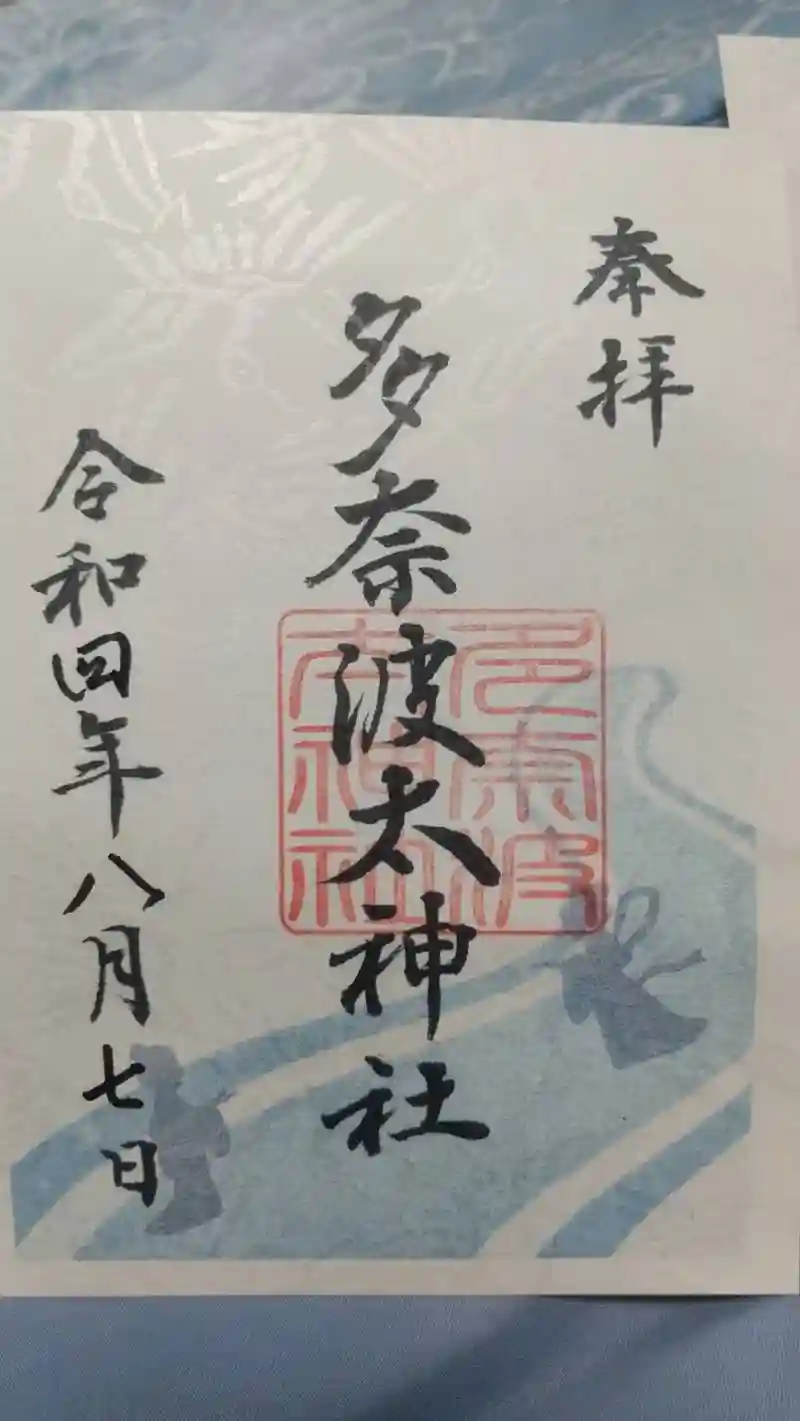 奉拝
多奈波太神社
多奈波
太神社
令和四年八月七日